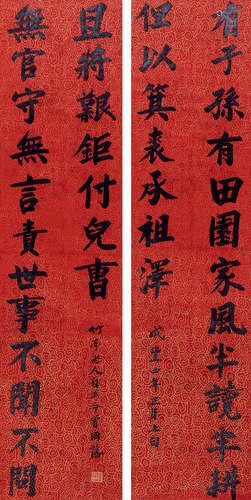 有子孫有田園家風半讀半耕
但以箕裘承祖澤
咸豐四年月上
無官守無言責世事不聞不問
且將艱鉅付兒曹
竹亭老人自國藩